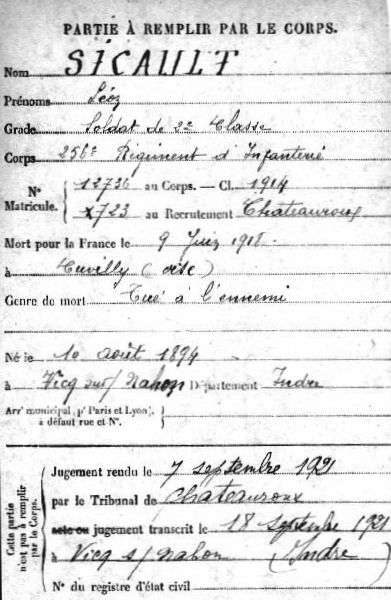 PARTIE À REMPLIR PAR LE CORPS.
Nom SICAULT
Prénoms Léoz
Grade Soldat de 2e Classe
Corps 256e Régiment d'Infanterie
N° Matricule. { 12736 au Corps. — Cl. 1914
1723 au Recrutement Chateauroux
Mort pour la France le 9 Juin 1918
à Cuvilly (oise)
Genre de mort Tué à l'ennemi
Né le 10 août 1894
à Vicq sur Nahon Département Indre
Arr' municipal (p' Paris et Lyon),
à défaut rue et N°.
Cette partie n'est pas à remplir par le Corps.
Jugement rendu le 7 septembre 1921
par le Tribunal de Chateauroux
acte ou jugement transcrit le 18 septembre 1921
à Vicq s/ Nahon (Indre)
N° du registre d'état civil